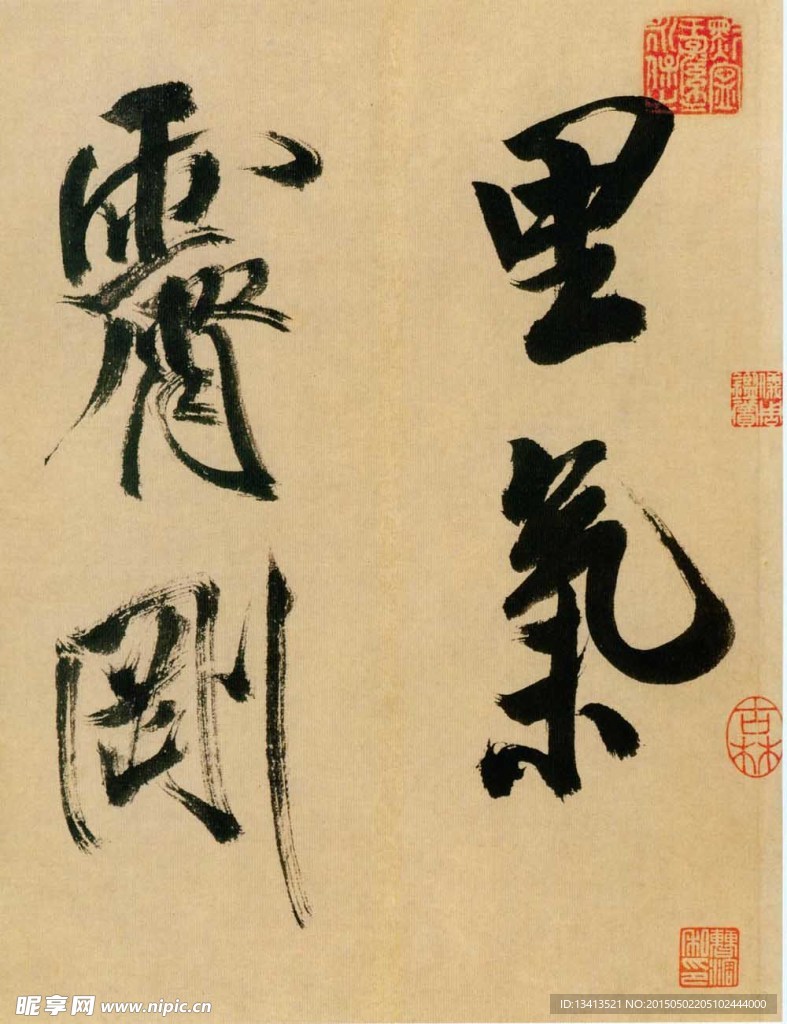 里氣
霽剛
儀周鑑賞
古林
昵享网 www.nipic.cn
ID:13413521 NO:20150502205102444000